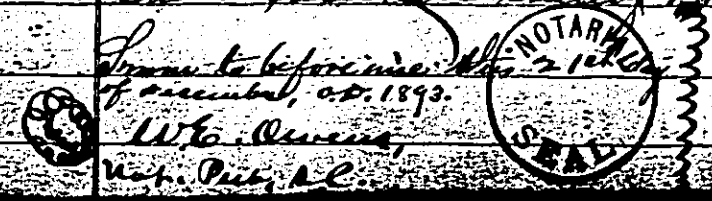 Sworn to before me this 21st day
of December, A.D. 1893.
W.E. Owens,
Not. Pub, D.C.
NOTARIAL
SEAL